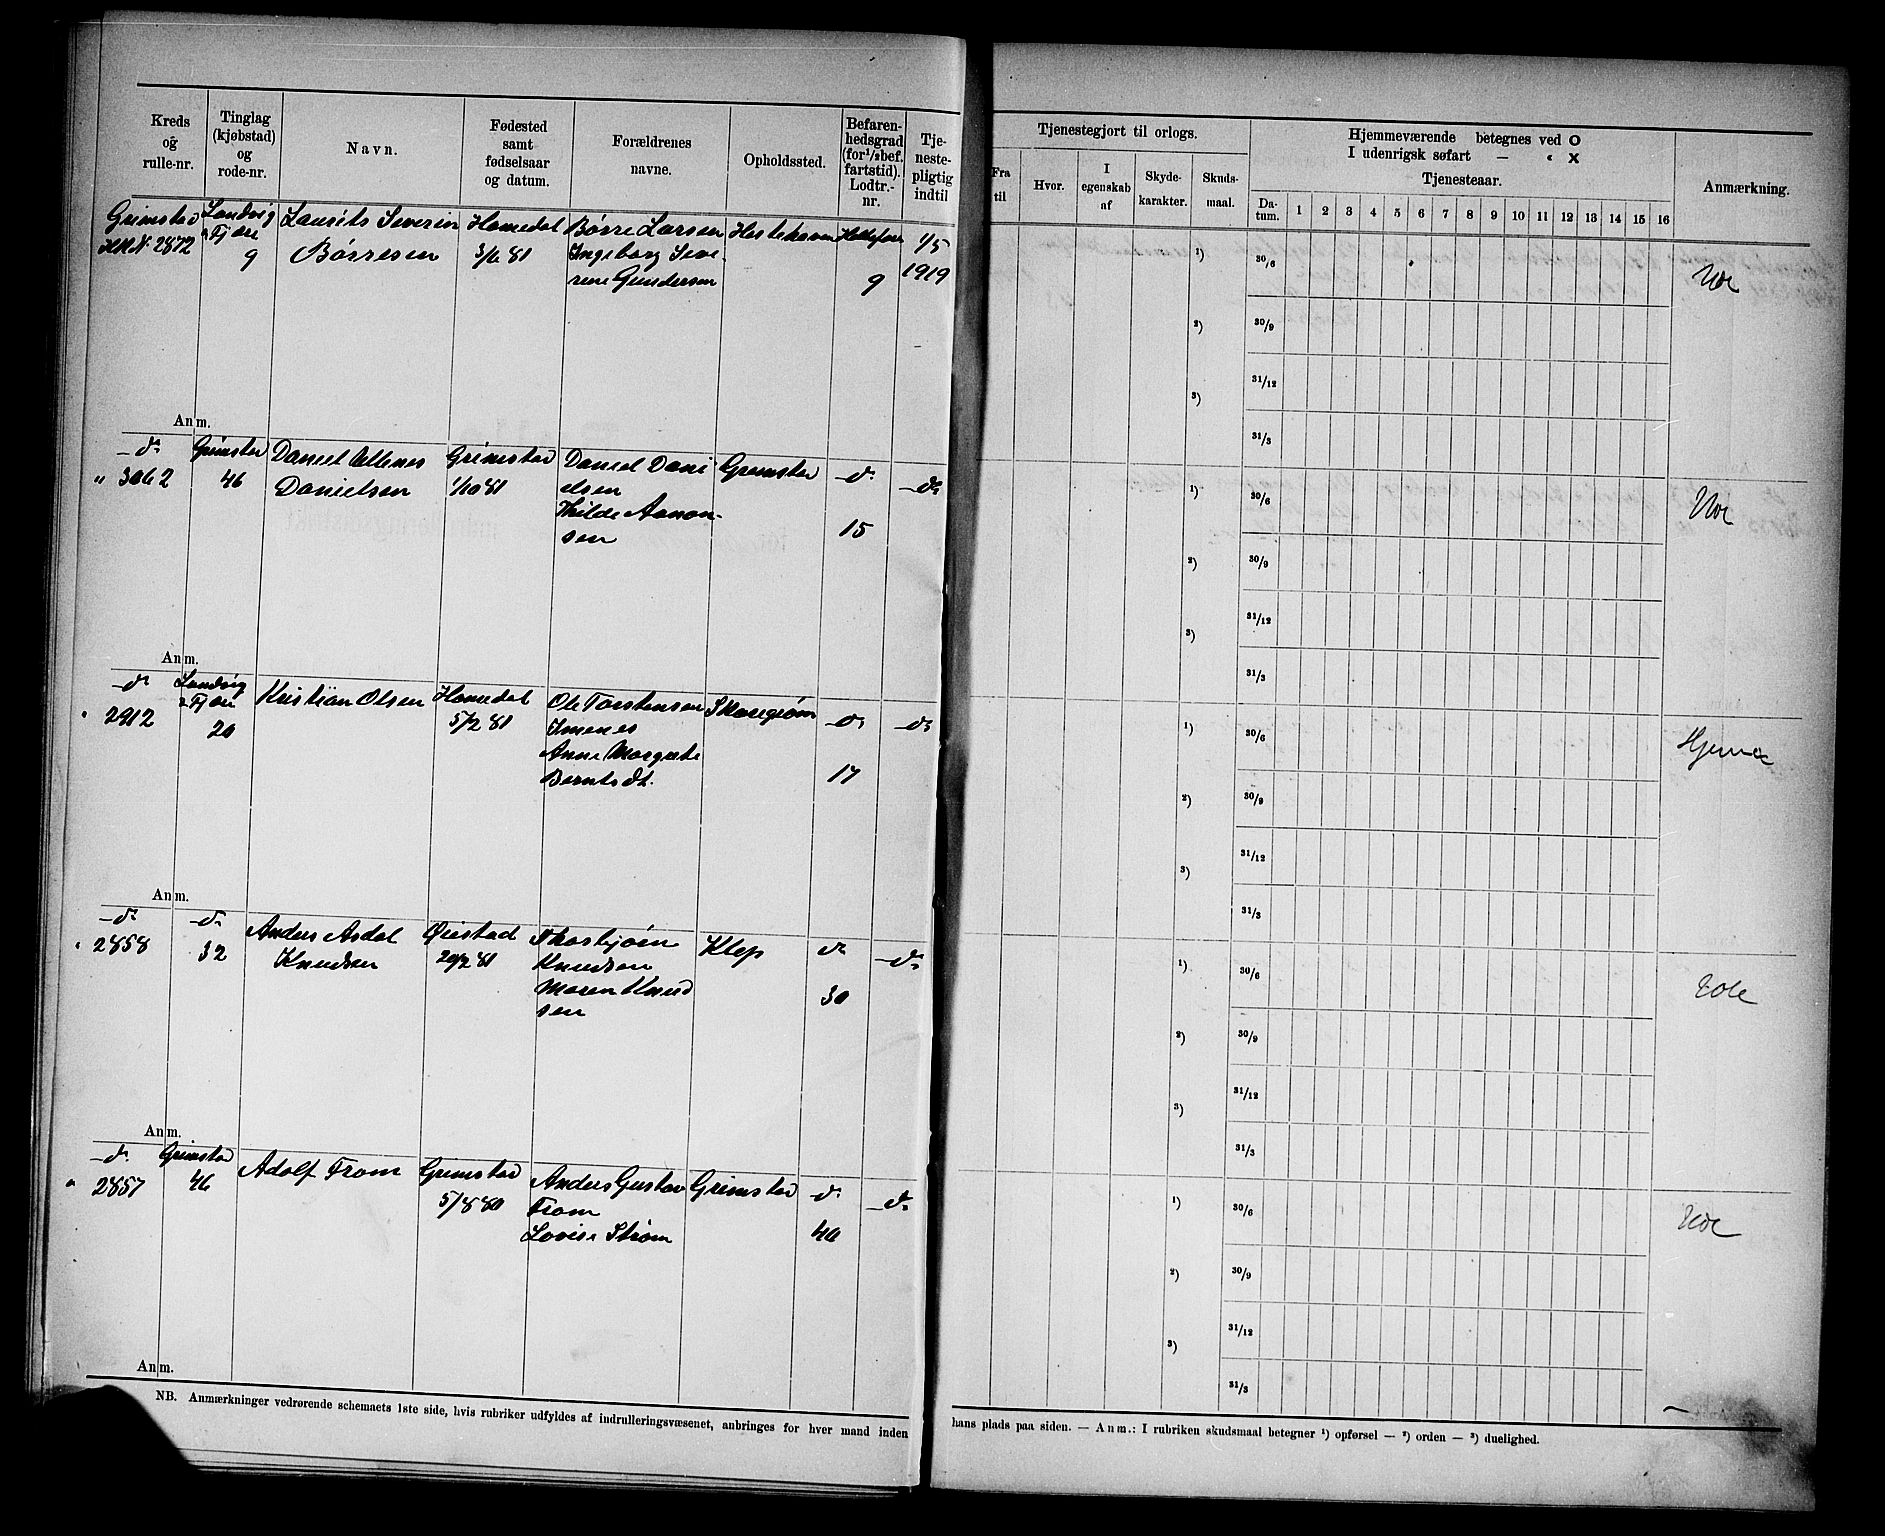 Kreds
og
rulle-nr.
Tinglag
(kjøbstad)
og
rode-nr.
Navn.
Fødested
samt
fødselsaar
og datum.
Forældrenes
navne.
Opholdssted.
Befaren-
hedsgrad
(for ½ bef.
fartstid).
Lodtr.-
nr.
Tje-
neste-
pligtig
indtil
Grimstad
2872
Landvig
Fjære
9
Laurits Severin
Børresen
Homedal
3/6 81
Børre Larsen
Ingeborg Seve-
rine Gundersen
9
1/5
1919
Anm.
d°
" 3062
Grimstad
46
Daniel
Danielsen
Grimstad
1/10 81
Daniel Dani
elsen
Thilde Aanon-
sen
Grimstad
d°
15
d°
Anm.
d°
2912
Landvig
Fjære
20
Kristian Olsen
Homedal
5/2 81
Ole Torstensen
Imenes
Anne Margrete
Berntsdt.
d°
17
d°
Anm.
d°
2858
d°
32
Anders Asdal
Knudsen
Øiestad
20/2 81
Thorbjørn
Knudsen
Maren Knud
sen
Klep
d°
30
d°
Anm.
d°
" 2857
Grimstad
46
Adolf From
Grimstad
5/8 80
Anders Gustav
From
Lovise Strøm
Grimstad
d°
40
d°
Anm.
NB. Anmærkninger vedrørende schemaets 1ste side, hvis rubriker udfyldes af indrulleringsvæsenet, anbringes for hver mand inden
Tjenestegjort til orlogs.
Fra
til
Hvor.
I
egenskab
af
Skyde-
karakter.
Skuds-
maal.
Hjemmeværende betegnes ved O
I udenrigsk søfart — " X
Tjenesteaar.
Da-
tum.
1 2 3 4 5 6 7 8 9 10 11 12 13 14 15 16
Anmærkning.
1) 30/6
Ude
2) 30/9
31/12
3)
31/3
1) 30/6
Ude
2) 30/9
31/12
3)
31/3
1) 30/6
Hjemme
2) 30/9
31/12
3)
31/3
1) 30/6
Ude
2) 30/9
31/12
3)
31/3
1) 30/6
Ude
2) 30/9
31/12
3)
31/3
hans plads paa siden. — Anm.: I rubriken skudsmaal betegner 1) opførsel — 2) orden — 3) duelighed.